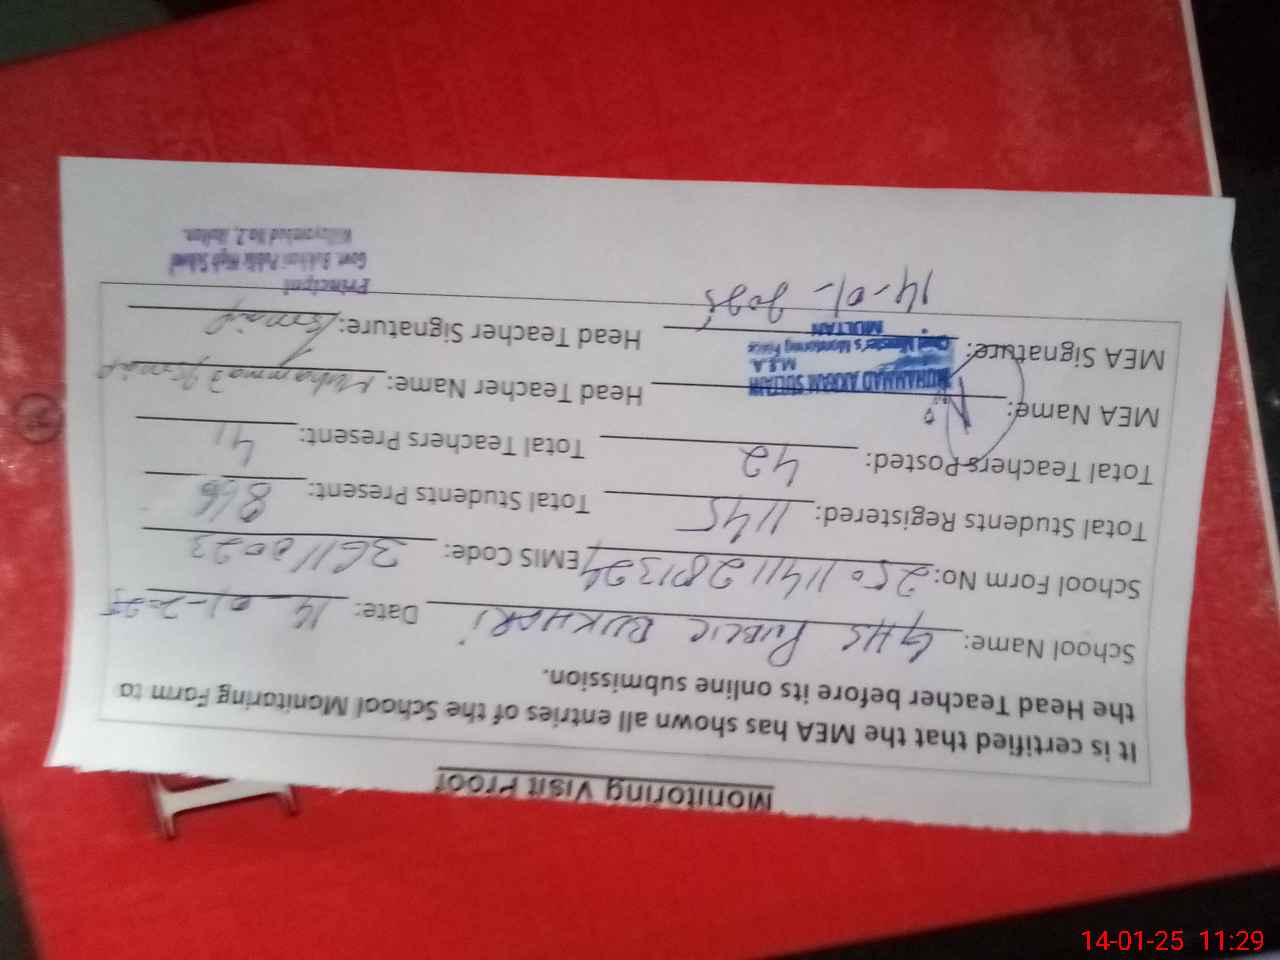 Monitoring Visit Proof
It is certified that the MEA has shown all entries of the School Monitoring Form to
the Head Teacher before its online submission.
School Name: GHS PUBLIC BUKHARI Date: 14-01-2025
School Form No: EMIS Code: 36110023
Total Students Registered: 1145 Total Students Present:
Total Teachers Posted: 42 Total Teachers Present: 41
MEA Name: MUHAMMAD AKRAM SULTAN Head Teacher Name: Muhammad Ismail
M.E.A.
Chief Minister's Monitoring Force
MULTAN
MEA Signature: Head Teacher Signature: Ismail
14-01-2025
Principal
Govt. Bukhari Public High School
Willayatabad No.2, Multan.
14-01-25 11:29